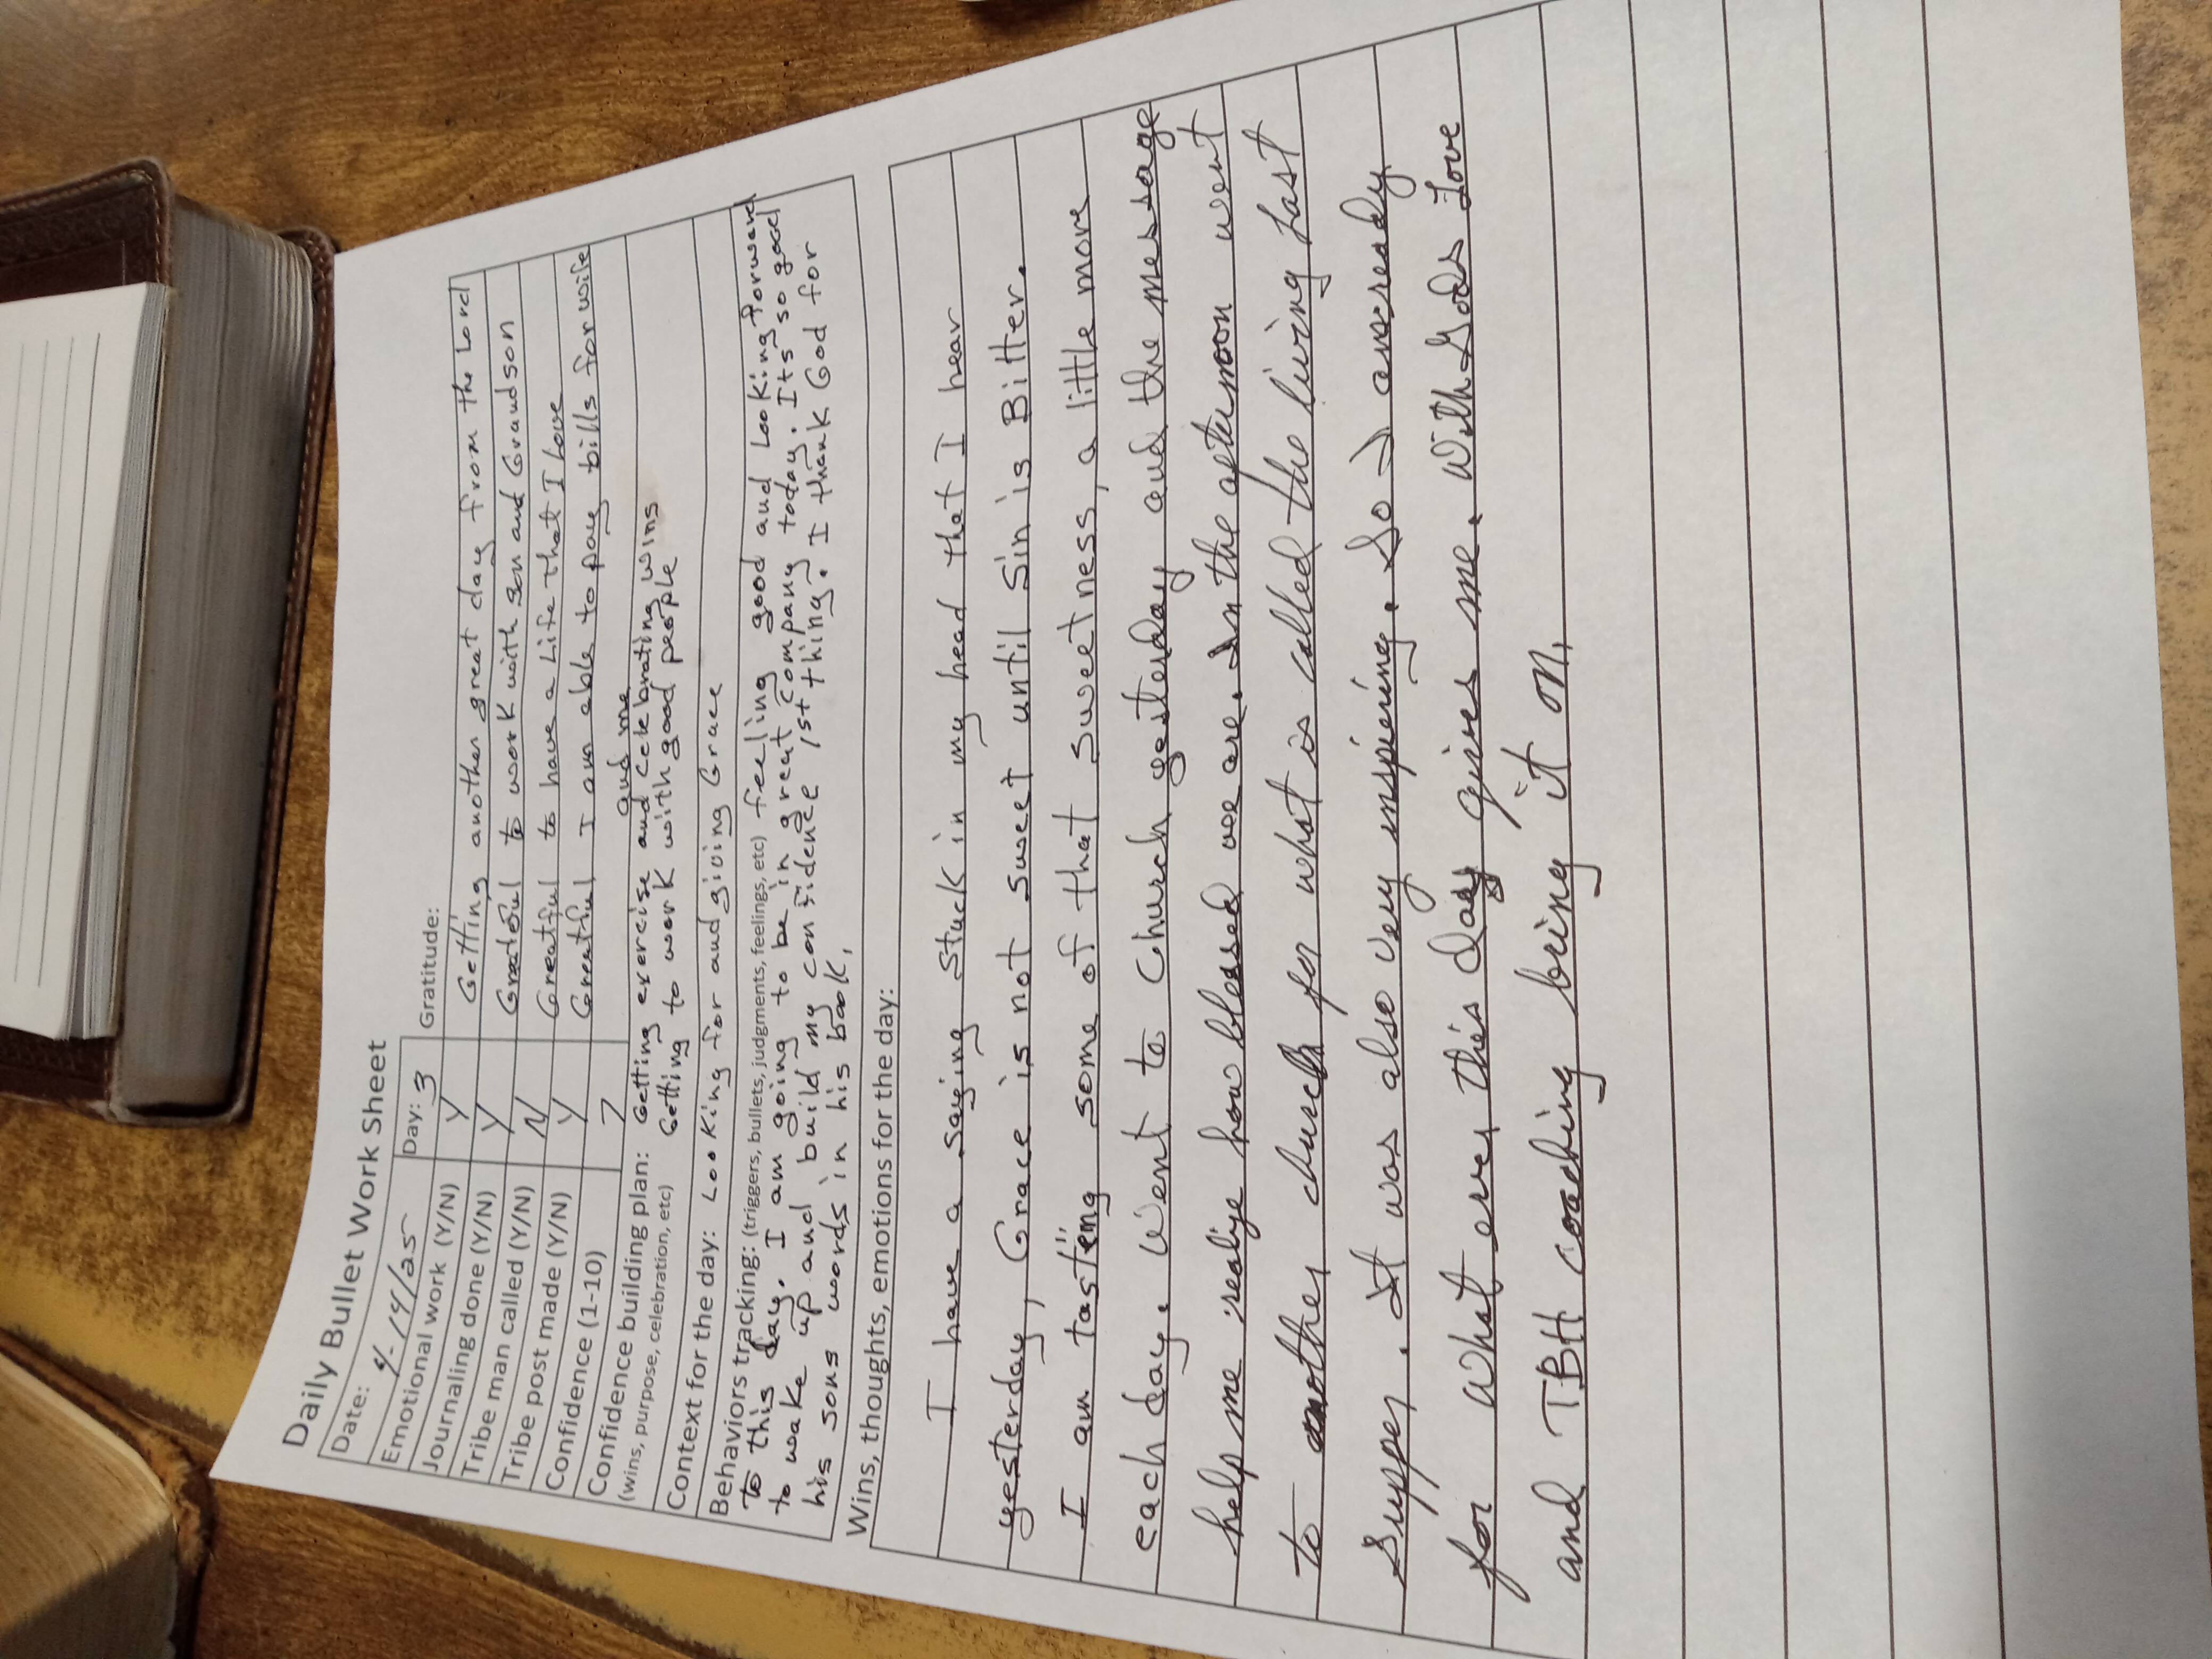 Daily Bullet Work Sheet
Date: 4-14/25 Day: 3 Gratitude:
Emotional work (Y/N) Y Getting another great day from the Lord
Journaling done (Y/N) Y Grateful to work with son and Grandson
Tribe man called (Y/N) N Greatful to have a Life that I Love
Tribe post made (Y/N) Y Greatful I am able to pay bills for wife
and me
Confidence (1-10) 7
Confidence building plan: Getting exercise and celebrating wins
(wins, purpose, celebration, etc) Getting to work with good people
Context for the day: Looking for and giving Grace
Behaviors tracking: (triggers, bullets, judgments, feelings, etc) feeling good and Looking forward
to this day. I am going to be in great company today. Its so good
to wake up and build my confidence 1st thing. I thank God for
his sons words in his book.
Wins, thoughts, emotions for the day:
I have a saying stuck in my head that I hear
yesterday, Grace is not sweet until Sin is Bitter.
I am tasting some of that sweetness, a little more
each day. Went to Church yesterday and the message
help me realize how blessed we are. In the afternoon went
to another church for what is called the living Last
Supper. It was also very inspiring. So I am ready
for what ever this day gives me. With Gods Love
and TBH coaching being it on.